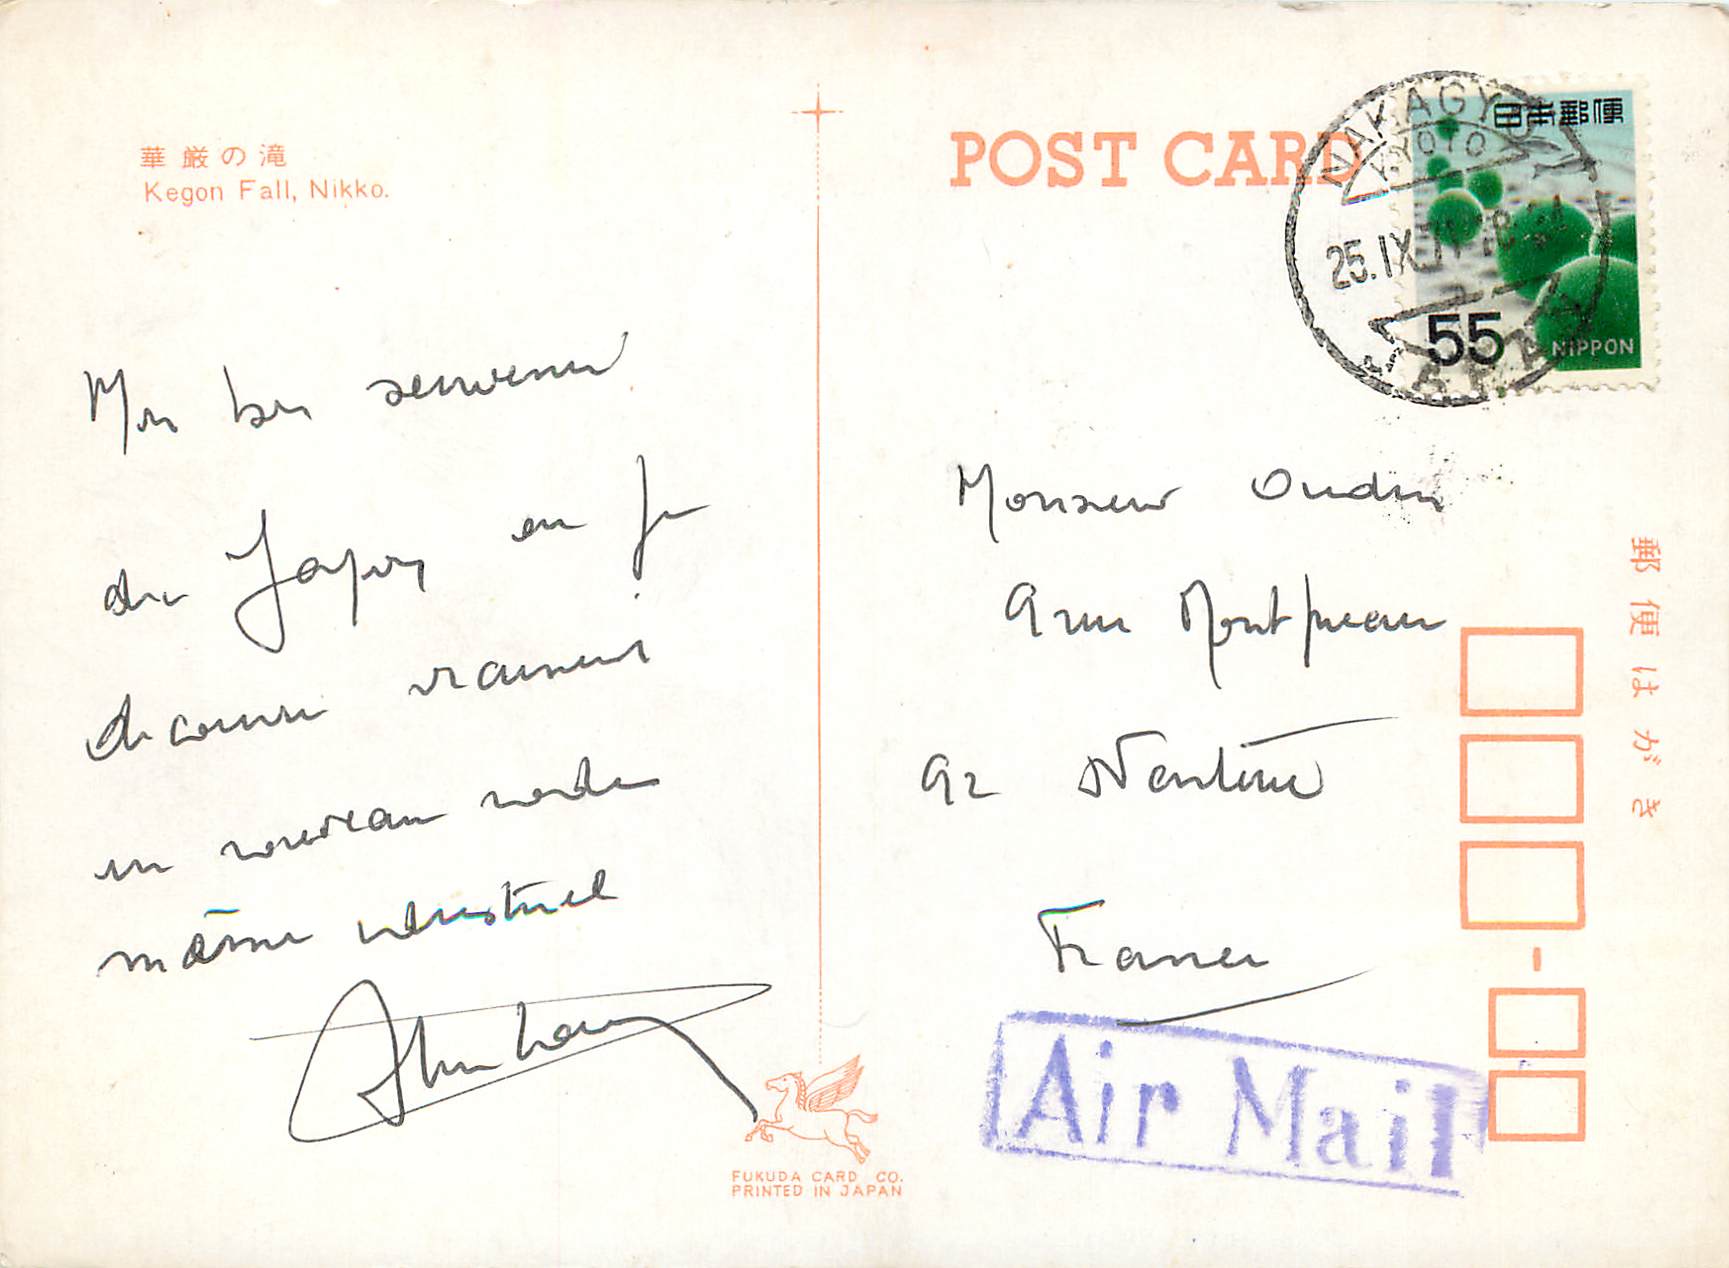 華厳の滝
Kegon Fall, Nikko.
Mon bon souvenir
du Japon où je
découvre vraiment
un nouveau monde
même industriel
POST CARD
日本郵便
55
NIPPON
NAKAGYO
KYOTO
25.IX.71
JAPAN
Monsieur Oudin
9 rue Montpensier
92 Nanterre
France
Air Mail
郵便はがき
FUKUDA CARD CO.
PRINTED IN JAPAN